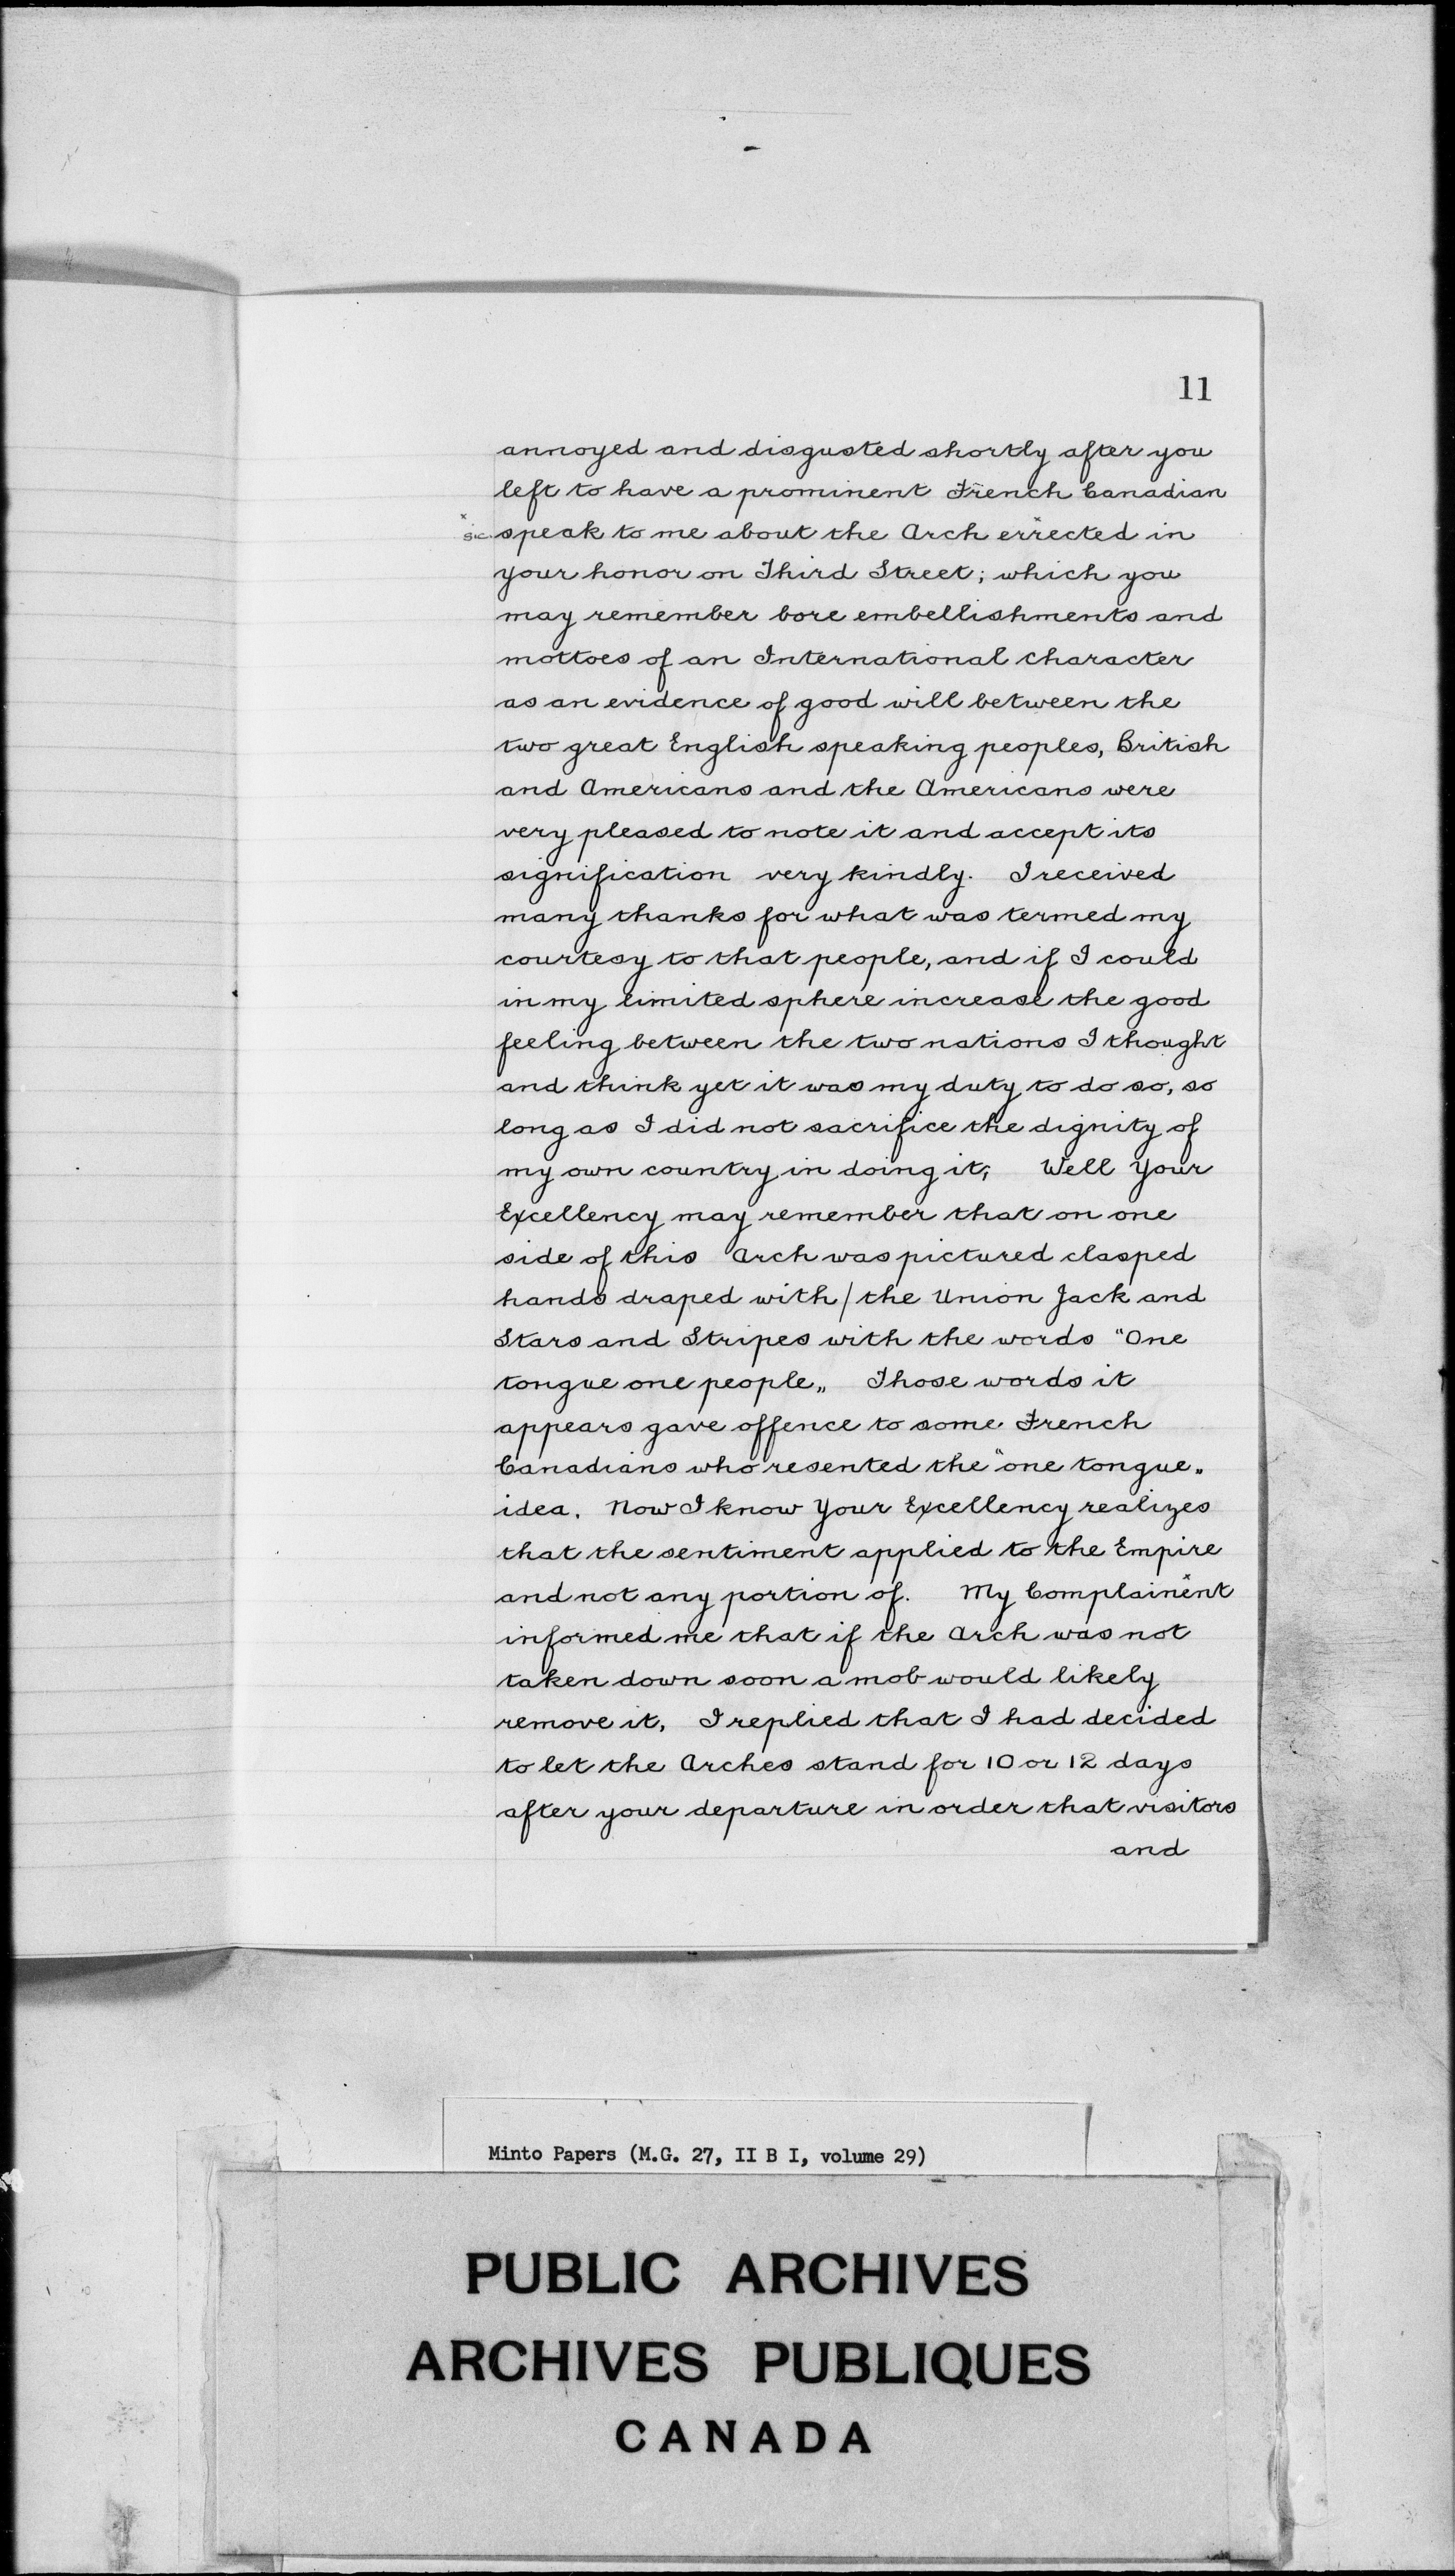 11
annoyed and disgusted shortly after you
left to have a prominent French Canadian
x sic. speak to me about the Arch errected x in
your honor on Third Street; which you
may remember bore embellishments and
mottoes of an International Character
as an evidence of good will between the
two great English speaking peoples, British
and Americans and the Americans were
very pleased to note it and accept its
signification very kindly. I received
many thanks for what was termed my
courtesy to that people, and if I could
in my limited sphere increase the good
feeling between the two nations I thought
and think yet it was my duty to do so, so
long as I did not sacrifice the dignity of
my own country in doing it; Well Your
Excellency may remember that on one
side of this Arch was pictured clasped
hands draped with / the Union Jack and
Stars and Stripes with the words "One
tongue one people„ Those words it
appears gave offence to some French
Canadians who resented the "one tongue„
idea. Now I know Your Excellency realizes
that the sentiment applied to the Empire
and not any portion of. My Complainent
informed me that if the Arch was not
taken down soon a mob would likely
remove it, I replied that I had decided
to let the Arches stand for 10 or 12 days
after your departure in order that visitors
and
Minto Papers (M.G. 27, II B I, volume 29)
PUBLIC ARCHIVES
ARCHIVES PUBLIQUES
CANADA